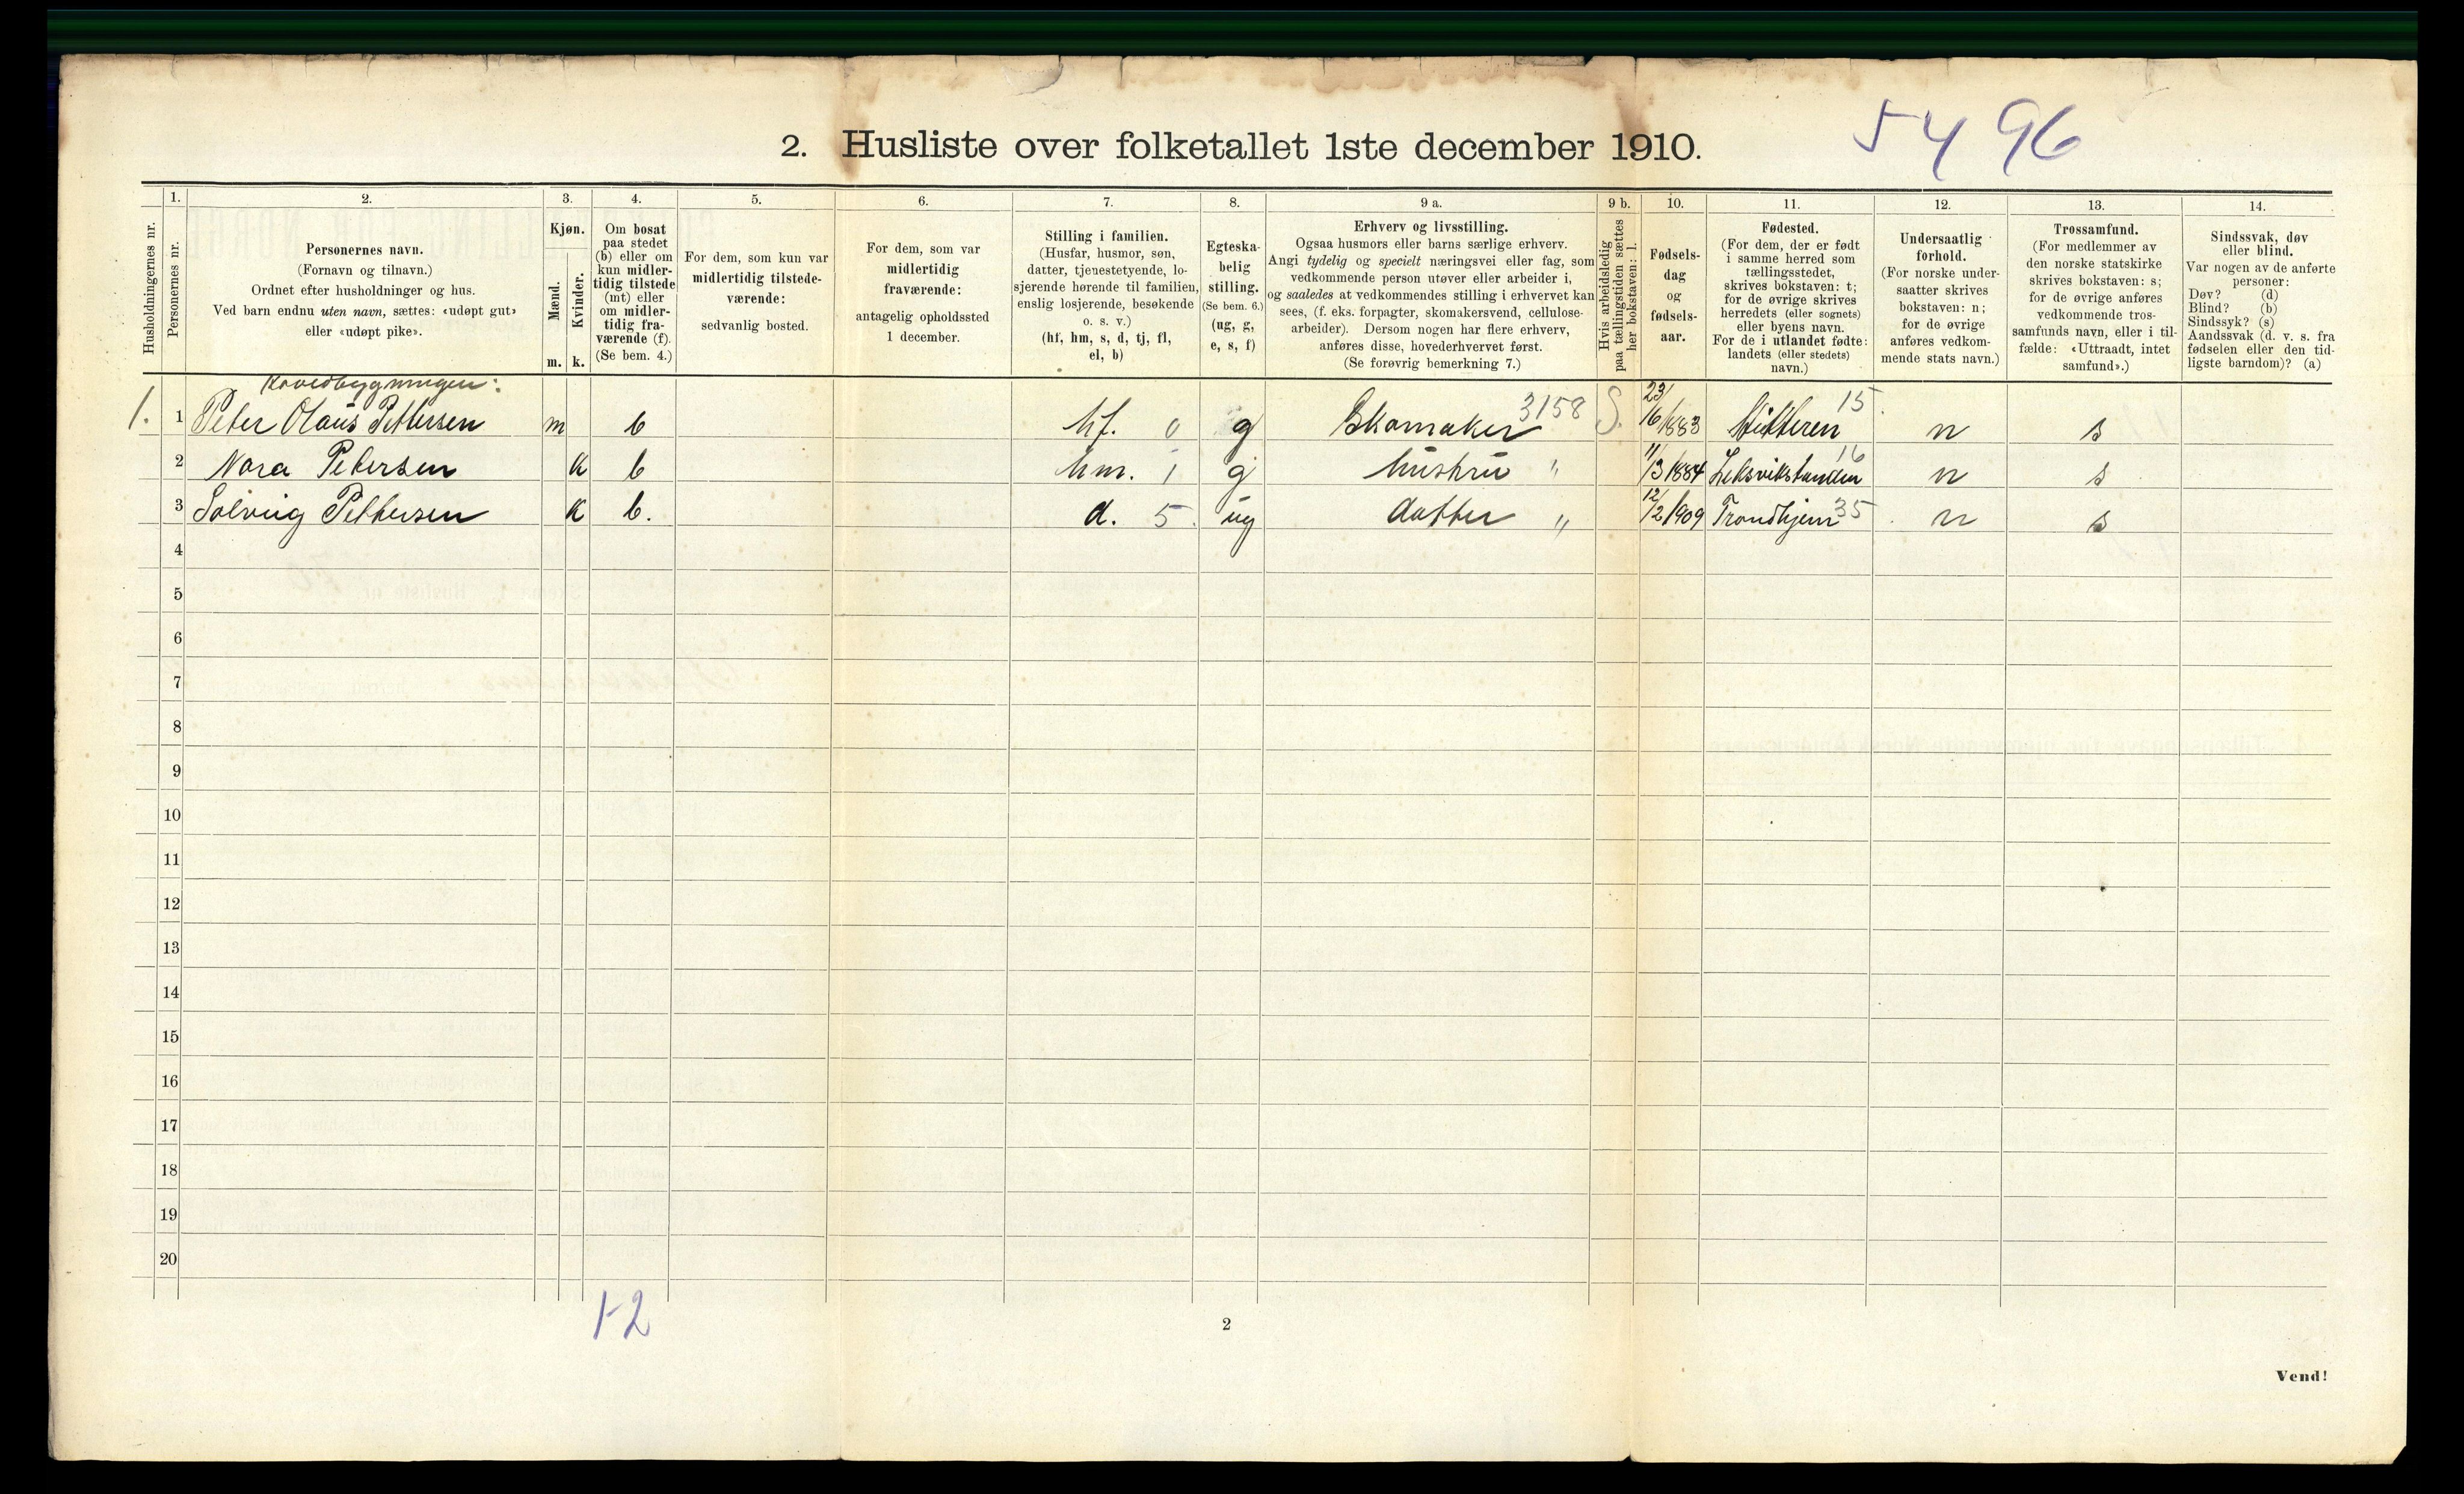 5496
2. Husliste over folketallet 1ste december 1910.
1. 2. 3. 4. 5. 6. 7. 8. 9 a. 9 b. 10. 11. 12. 13. 14.
Husholdningernes nr.
Personernes nr.
Personernes navn.
(Fornavn og tilnavn.)
Ordnet efter husholdninger og hus.
Ved barn endnu uten navn, sættes: «udøpt gut»
eller «udøpt pike».
Kjøn.
Mænd.
Kvinder.
m. k.
Om bosat
paa stedet
(b) eller om
kun midler-
tidig tilstede
(mt) eller
om midler-
tidig fra-
værende (f).
(Se bem. 4.)
For dem, som kun var
midlertidig tilstede-
værende:
sedvanlig bosted.
For dem, som var
midlertidig
fraværende:
antagelig opholdssted
1 december.
Stilling i familien.
(Husfar, husmor, søn,
datter, tjenestetyende, lo-
sjerende hørende til familien,
enslig losjerende, besøkende
o. s. v.)
(hf, hm, s, d, tj, fl,
el, b)
Egteska-
belig
stilling.
(Se bem. 6.)
(ug, g,
e, s, f)
Erhverv og livsstilling.
Ogsaa husmors eller barns særlige erhverv.
Angi tydelig og specielt næringsvei eller fag, som
vedkommende person utøver eller arbeider i,
og saaledes at vedkommendes stilling i erhvervet kan
sees, (f. eks. forpagter, skomakersvend, cellulose-
arbeider). Dersom nogen har flere erhverv,
anføres disse, hovederhvervet først.
(Se forøvrig bemerkning 7.)
Hvis arbeidsledig
paa tællingstiden sættes
her bokstaven: l.
Fødsels-
dag
og
fødsels-
aar.
Fødested.
(For dem, der er født
i samme herred som
tællingsstedet,
skrives bokstaven: t;
for de øvrige skrives
herredets (eller sognets)
eller byens navn.
For de i utlandet fødte:
landets (eller stedets)
navn.)
Undersaatlig
forhold.
(For norske under-
saatter skrives
bokstaven: n;
for de øvrige
anføres vedkom-
mende stats navn.)
Trossamfund.
(For medlemmer av
den norske statskirke
skrives bokstaven: s;
for de øvrige anføres
vedkommende tros-
samfunds navn, eller i til-
fælde: «Uttraadt, intet
samfund».)
Sindssvak, døv
eller blind.
Var nogen av de anførte
personer:
Døv? (d)
Blind? (b)
Sindssyk? (s)
Aandssvak (d. v. s. fra
fødselen eller den tid-
ligste barndom)? (a)
Hovedbygningen:
1. 1 Peter Olaus Pettersen m b hf. 0 g Skomaker 3158 S. 23/6 1883 Hitteren 15 n s
2 Nora Petersen k b hm. 1 g hustru " 11/3 1884 Leksvikstranden 16 n s
3 Solveig Pettersen k b. d. 5 ug datter " 12/2 1909 Trondhjem 35 n s
4
5
6
7
8
9
10
11
12
13
14
15
16
17
18
19
20
1-2
2
Vend!